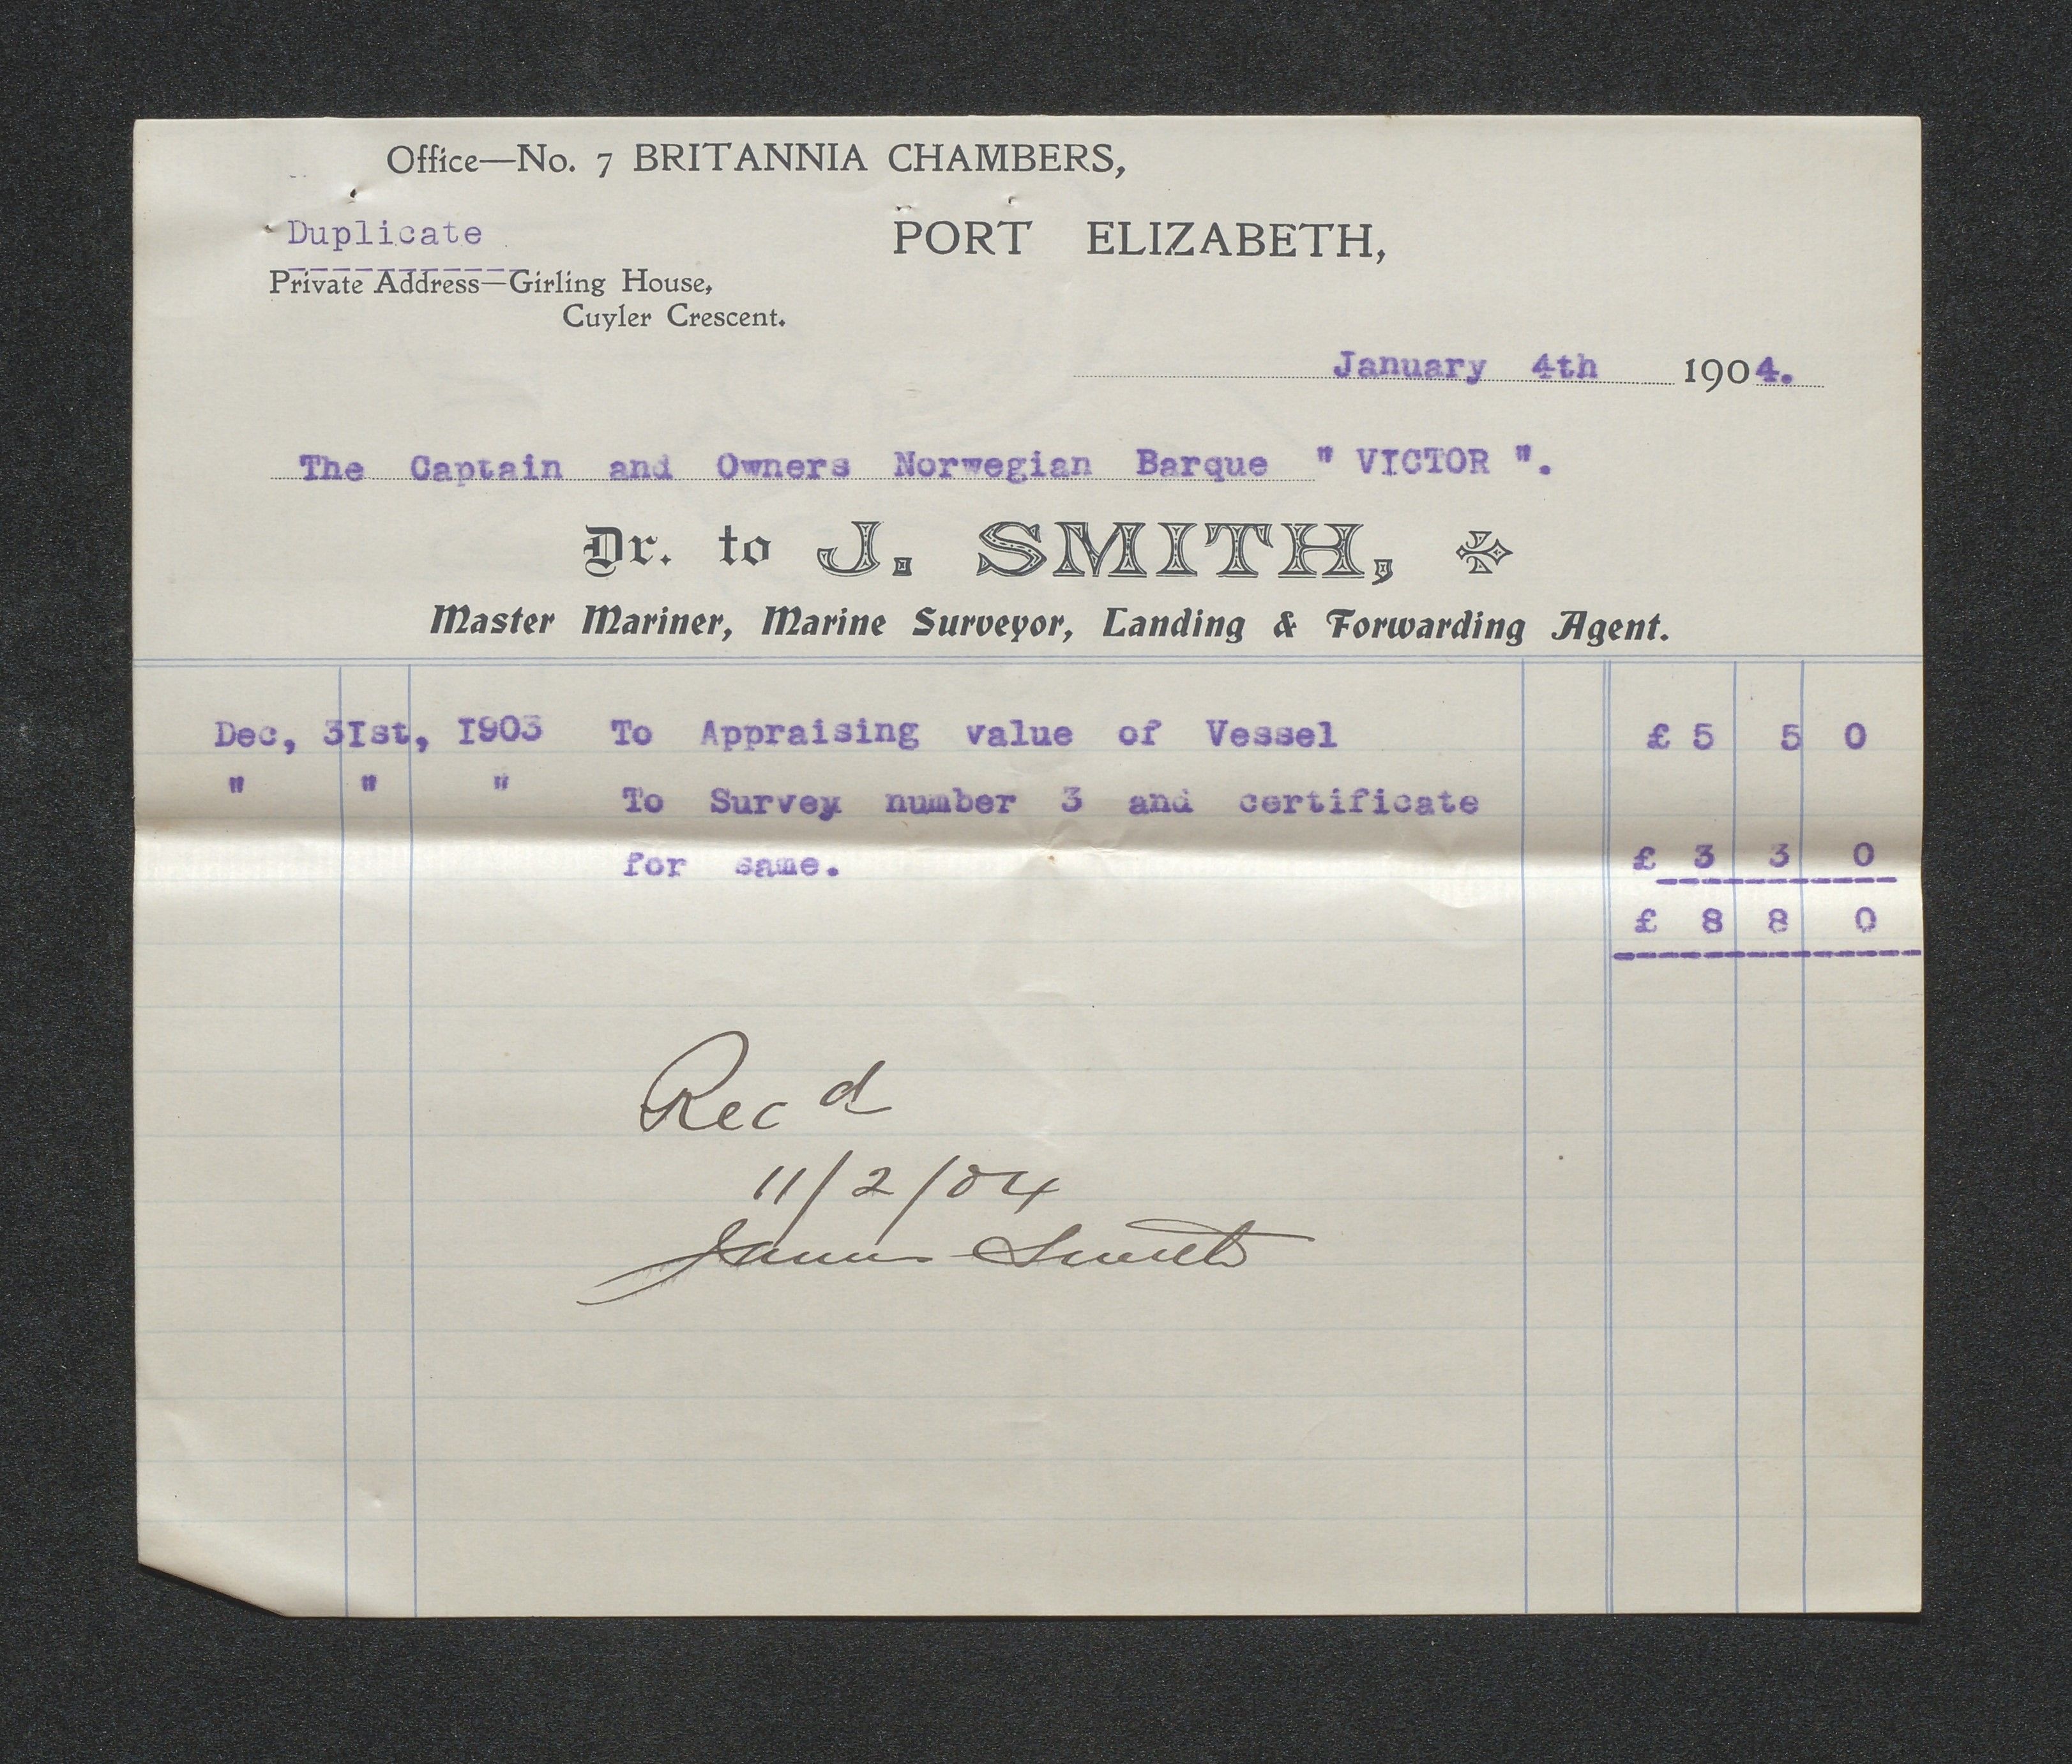 Office—No. 7 BRITANNIA CHAMBERS,
Duplicate
PORT ELIZABETH,
Private Address—Girling House,
Cuyler Crescent.
January 4th 1904.
The Captain and Owners Norwegian Barque " VICTOR ".
Dr. to J. SMITH,
Master Mariner, Marine Surveyor, Landing & Forwarding Agent.
Dec, 3Ist, I903 To Appraising value of Vessel £ 5 5 0
" " " To Survey number 3 and certificate
for same. £ 3 3 0
£ 8 8 0
Recd
11/2/04
James Smith